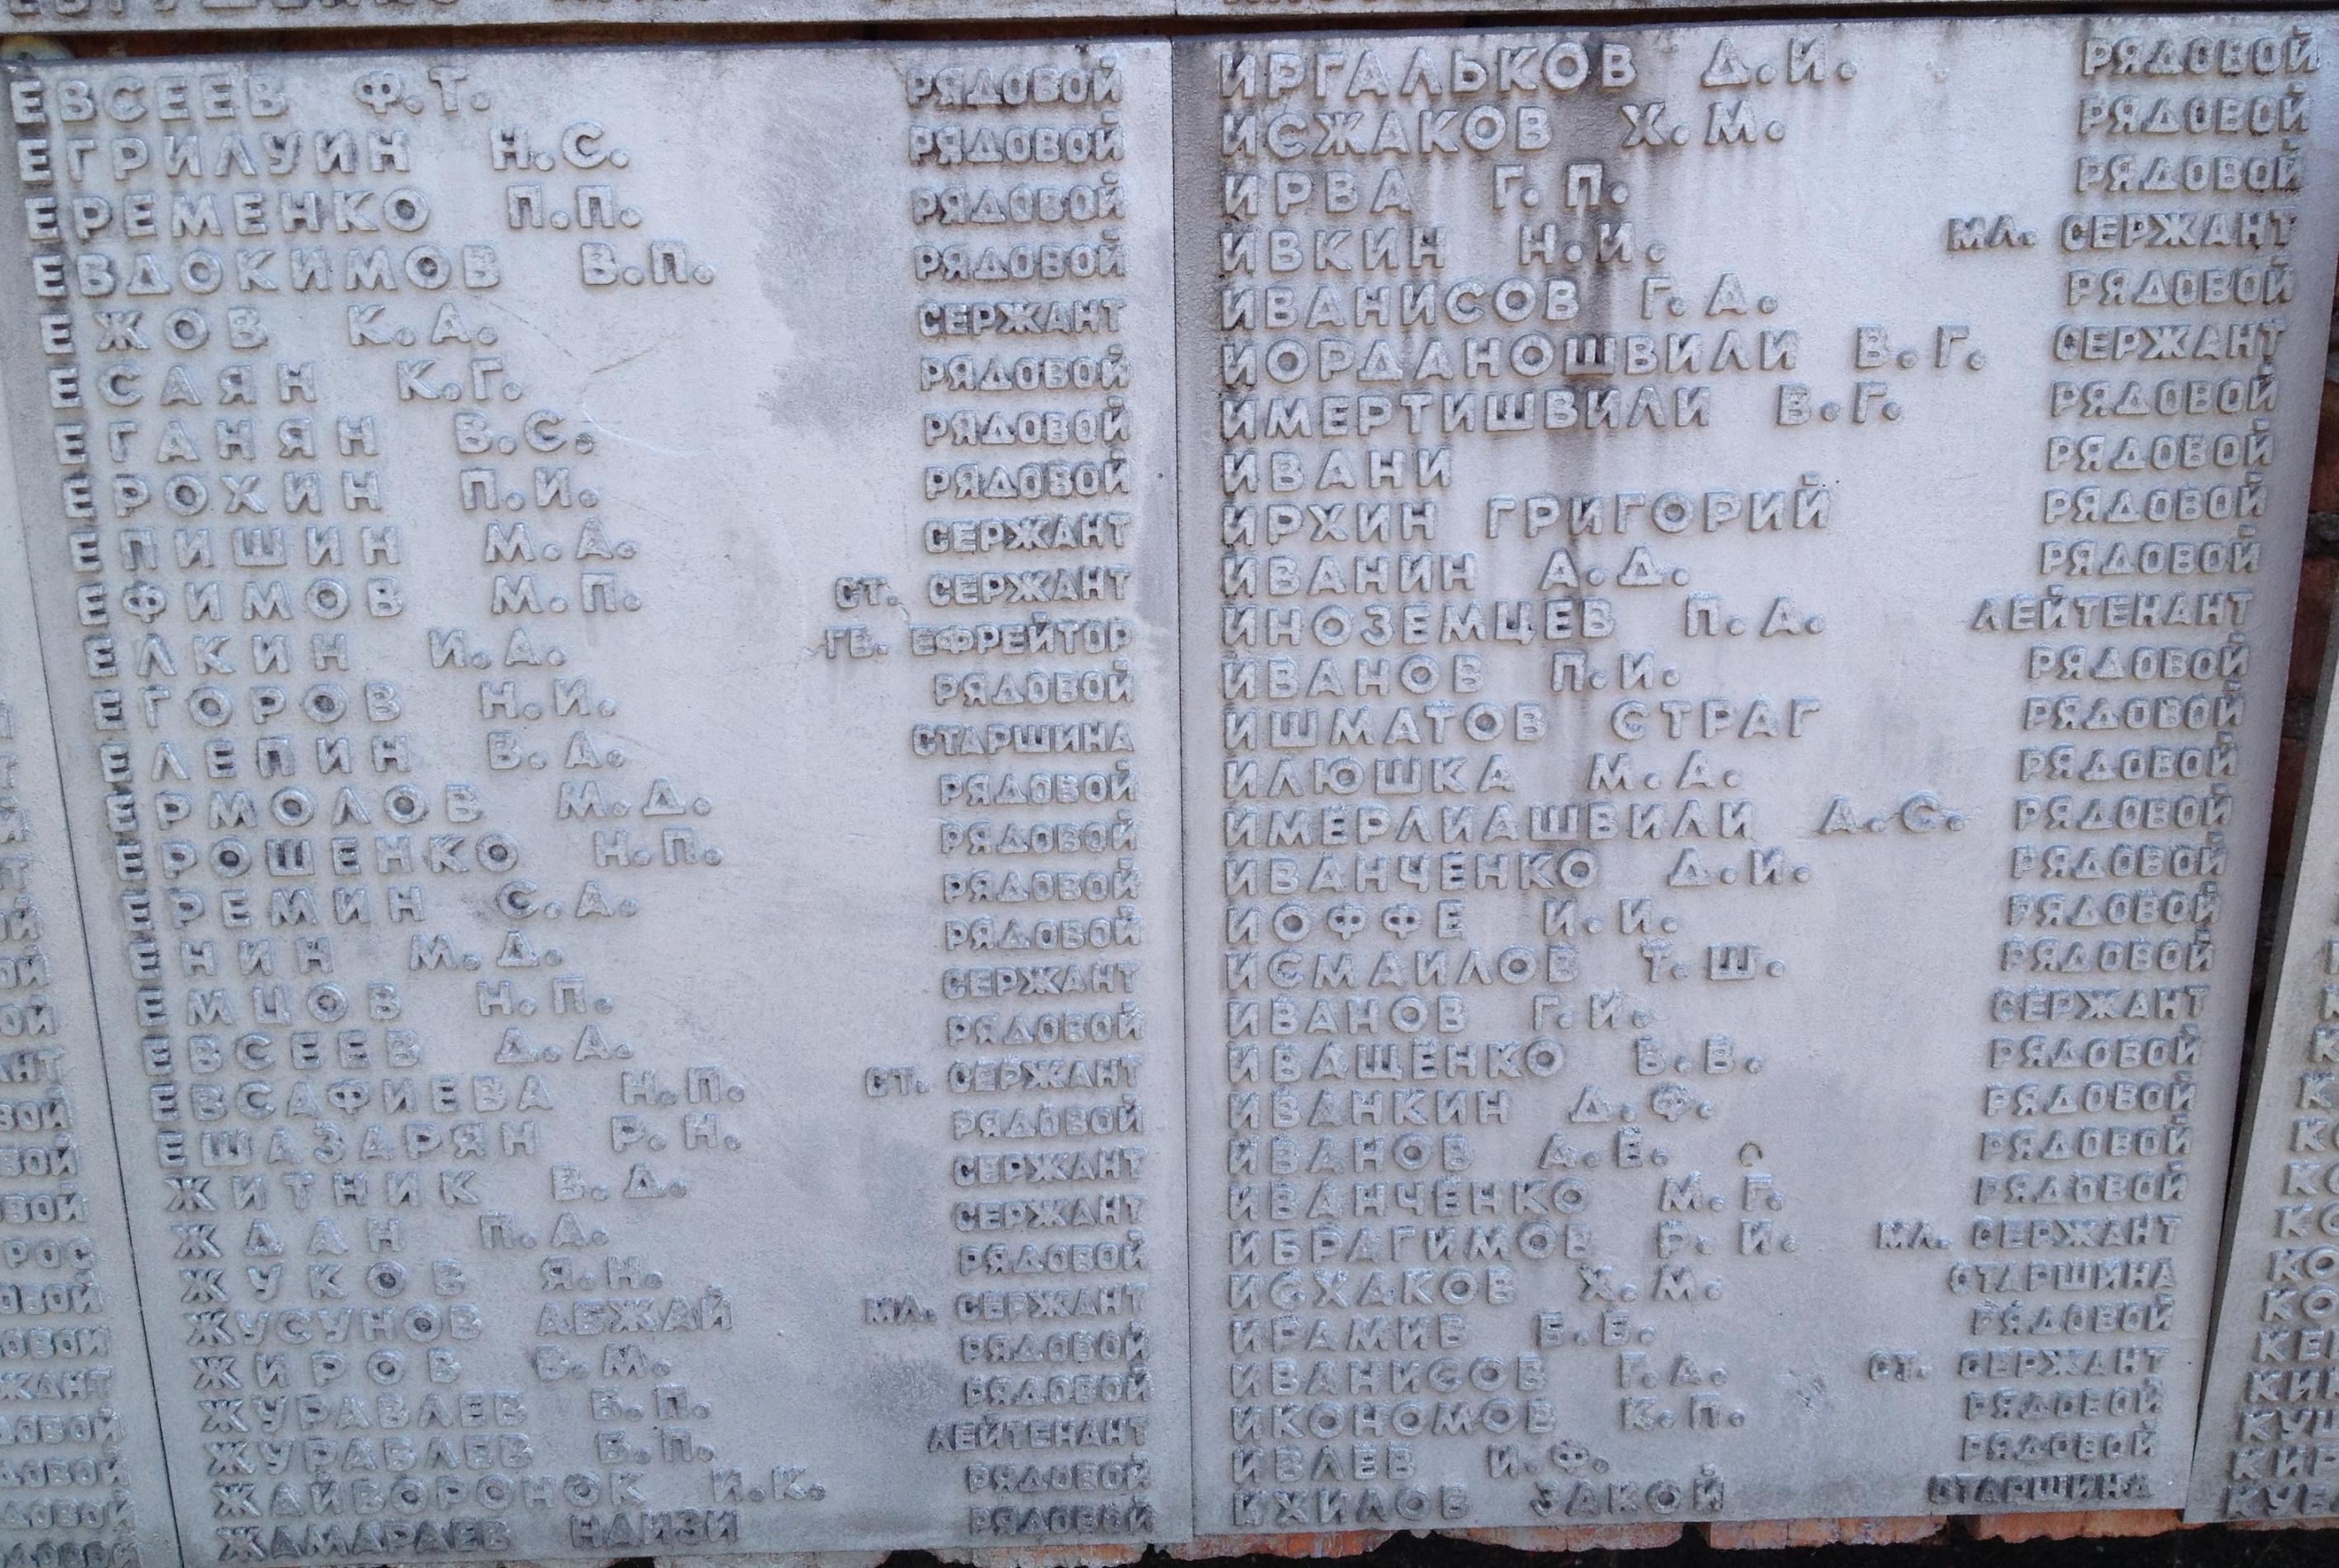 ЕВСЕЕВ Ф.Т. РЯДОВОЙ
ЕГРИЛУИН Н.С. РЯДОВОЙ
ЕРЕМЕНКО П.П. РЯДОВОЙ
ЕВДОКИМОВ В.П. РЯДОВОЙ
ЕЖОВ К.А. СЕРЖАНТ
ЕСАЯН К.Г. РЯДОВОЙ
ЕГАНЯН В.С. РЯДОВОЙ
ЕРОХИН П.И. РЯДОВОЙ
ЕПИШИН М.А. СЕРЖАНТ
ЕФИМОВ М.П. СТ. СЕРЖАНТ
ЕЛКИН И.А. ГВ. ЕФРЕЙТОР
ЕГОРОВ Н.И. РЯДОВОЙ
ЕЛЕПИН В.А. СТАРШИНА
ЕРМОЛОВ М.Д. РЯДОВОЙ
ЕРОШЕНКО Н.П. РЯДОВОЙ
ЕРЕМИН С.А. РЯДОВОЙ
ЕНИН М.Д. РЯДОВОЙ
ЕМЦОВ Н.П. СЕРЖАНТ
ЕВСЕЕВ Д.А. РЯДОВОЙ
ЕВСАФИЕВА Н.П. СТ. СЕРЖАНТ
ЕШАЗАРЯН Р.Н. РЯДОВОЙ
ЖИТНИК В.Д. СЕРЖАНТ
ЖДАН П.А. СЕРЖАНТ
ЖУКОВ Я.Н. РЯДОВОЙ
ЖУСУНОВ АБЖАЙ МЛ. СЕРЖАНТ
ЖИРОВ В.М. РЯДОВОЙ
ЖУРАВЛЕВ Б.П. РЯДОВОЙ
ЖУРАВЛЕВ Б.П. ЛЕЙТЕНАНТ
ЖАЙВОРОНОК И.К. РЯДОВОЙ
ЖАМАРАЕВ НАИЗИ РЯДОВОЙ
ИРГАЛЬКОВ Д.И. РЯДОВОЙ
ИСЖАКОВ Х.М. РЯДОВОЙ
ИРВА Г.П. РЯДОВОЙ
ИВКИН Н.И. МЛ. СЕРЖАНТ
ИВАНИСОВ Г.А. РЯДОВОЙ
ИОРДАНОШВИЛИ В.Г. СЕРЖАНТ
ИМЕРТИШВИЛИ В.Г. РЯДОВОЙ
ИВАНИ РЯДОВОЙ
ИРХИН ГРИГОРИЙ РЯДОВОЙ
ИВАНИН А.Д. РЯДОВОЙ
ИНОЗЕМЦЕВ П.А. ЛЕЙТЕНАНТ
ИВАНОВ П.И. РЯДОВОЙ
ИШМАТОВ СТРАГ РЯДОВОЙ
ИЛЮШКА М.А. РЯДОВОЙ
ИМЕРЛИАШВИЛИ А.С. РЯДОВОЙ
ИВАНЧЕНКО Д.И. РЯДОВОЙ
ИОФФЕ И.И. РЯДОВОЙ
ИСМАИЛОВ Т.Ш. РЯДОВОЙ
ИВАНОВ Г.И. СЕРЖАНТ
ИВАЩЕНКО В.В. РЯДОВОЙ
ИВАНКИН Д.Ф. РЯДОВОЙ
ИВАНОВ А.Е. РЯДОВОЙ
ИВАНЧЕНКО М.Г. РЯДОВОЙ
ИБРАГИМОВ Р.И. МЛ. СЕРЖАНТ
ИСХАКОВ Х.М. СТАРШИНА
ИРАМИБ Б.Е. РЯДОВОЙ
ИВАНИСОВ Г.А. СТ. СЕРЖАНТ
ИКОНОМОВ К.П. РЯДОВОЙ
ИВЛЕВ И.Ф. РЯДОВОЙ
ИХИЛОВ ЗАКОЙ СТАРШИНА